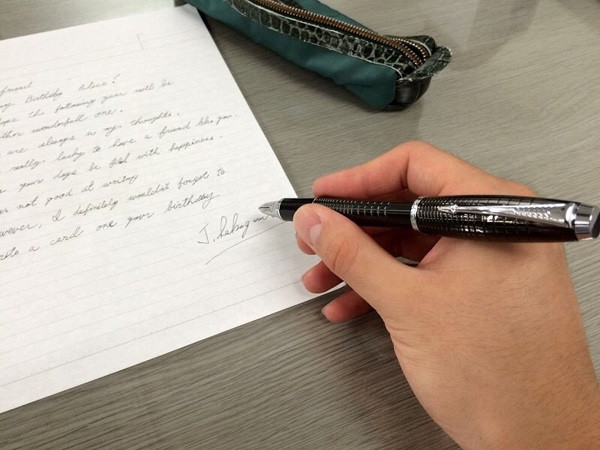 Birthday Alice!
the following year will be
wonderful one.
are always in my thoughts.
really lucky to have a friend like you.
your days be filled with happiness.
not good at writing
wever, I definitely wouldn't forget to
a card one your birthday
J.